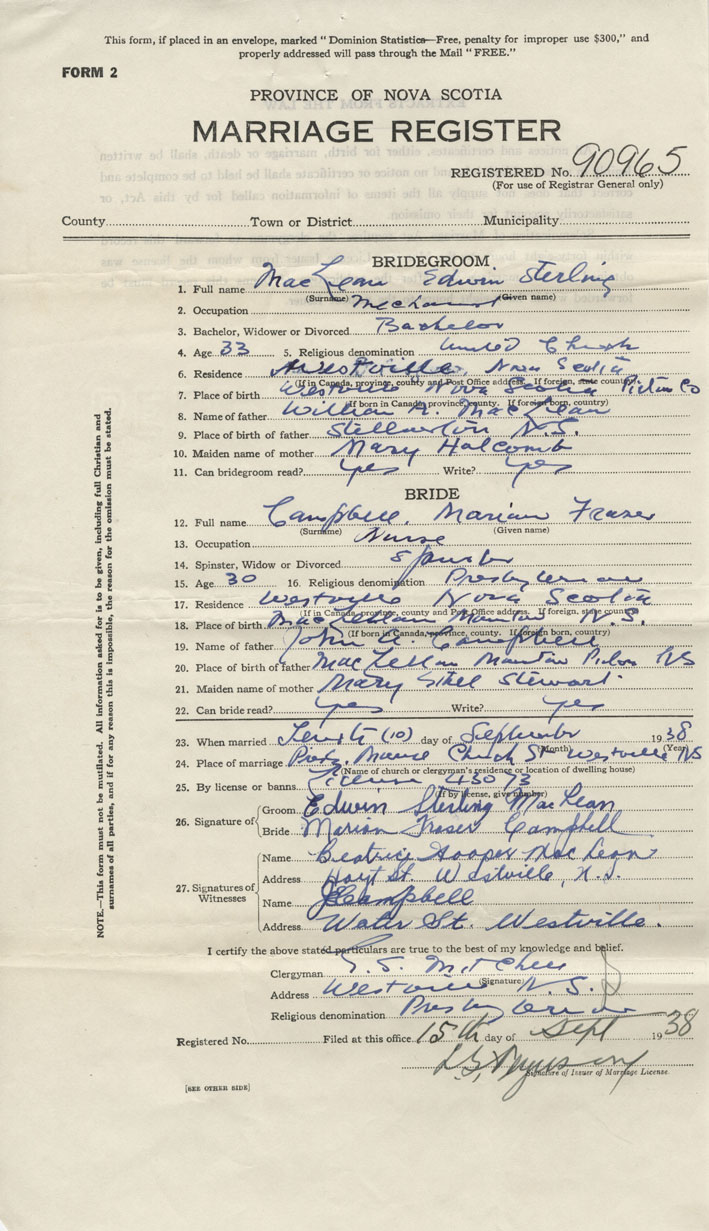 This form, if placed in an envelope, marked "Dominion Statistics—Free, penalty for improper use $300," and
properly addressed will pass through the Mail "FREE."
FORM 2
PROVINCE OF NOVA SCOTIA
MARRIAGE REGISTER
REGISTERED No. 90965
(For use of Registrar General only)
County Town or District Municipality
BRIDEGROOM
1. Full name MacLean Edwin Sterling
(Surname) (Given name)
2. Occupation Mechanic
3. Bachelor, Widower or Divorced Bachelor
4. Age 33 5. Religious denomination United Church
6. Residence Westville, Nova Scotia
(If in Canada, province, county and Post Office address. If foreign, state country)
7. Place of birth Westville Nova Scotia Pictou Co
(If born in Canada, province, county. If foreign born, country)
8. Name of father William A. MacLean
9. Place of birth of father Stellarton N.S.
10. Maiden name of mother Mary Holcomb
11. Can bridegroom read? yes Write? yes
BRIDE
12. Full name Campbell, Marian Fraser
(Surname) (Given name)
13. Occupation Nurse
14. Spinster, Widow or Divorced Spinster
15. Age 30 16. Religious denomination Presbyterian
17. Residence Westville Nova Scotia
(If in Canada, province, county and Post Office address. If foreign, state country)
18. Place of birth MacLellan Mountain N.S.
(If born in Canada, province, county. If foreign born, country)
19. Name of father John A. Campbell
20. Place of birth of father MacLellan Mountain Pictou NS
21. Maiden name of mother Mary Ethel Stewart
22. Can bride read? yes Write? yes
23. When married Tenth (10) day of September 1938
(Month) (Year)
24. Place of marriage Presby. Manse Church St Westville NS
(Name of church or clergyman's residence or location of dwelling house)
25. By license or banns License 45073
(If by license, give number)
26. Signature of Groom Edwin Sterling MacLean
Bride Marion Fraser Campbell
27. Signatures of Witnesses
Name Beatrice Hooper MacLean
Address St. Westville, N.S.
Name Campbell
Address Water St. Westville.
I certify the above stated particulars are true to the best of my knowledge and belief.
Clergyman Mitchell
(Signature)
Address Westville N.S.
Religious denomination Presbyterian
Registered No. Filed at this office 15th day of Sept 1938
Signature of Issuer of Marriage License.
[SEE OTHER SIDE]
NOTE.—This form must not be mutilated. All information asked for is to be given, including full Christian and
surnames of all parties, and if for any reason this is impossible, the reason for the omission must be stated.